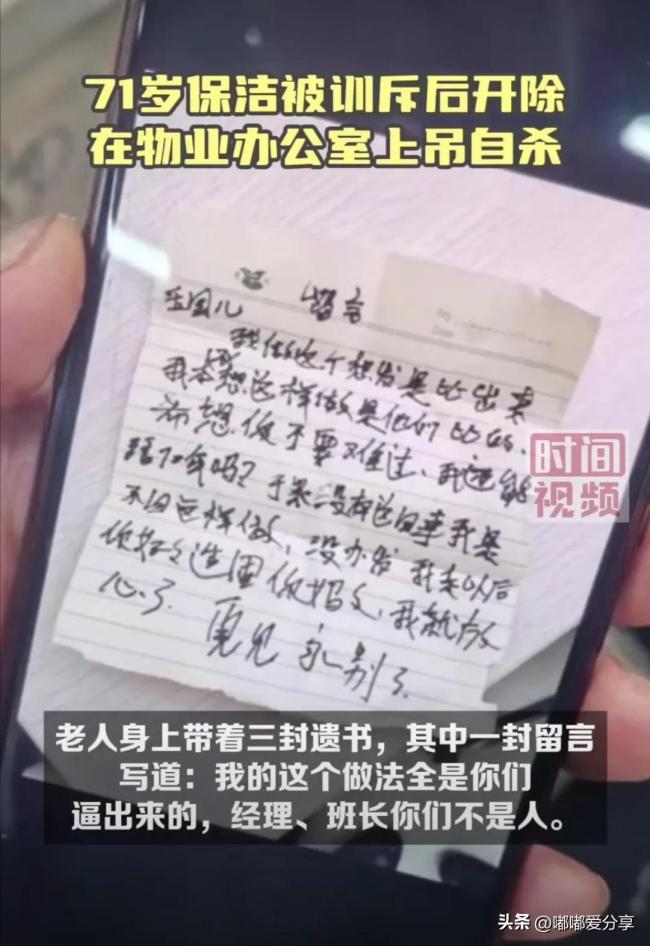 71岁保洁被训斥后开除
在物业办公室上吊自杀
留言
我做这个想发是
我本想这样做是他们
不要难过、我还能
吗？ 没有这回事我是
不回这样做、没办发 我走以后
你好好 你妈 我就放
心了.
再见 永别了
时间
视频
老人身上带着三封遗书，其中一封留言
写道：我的这个做法全是你们
逼出来的，经理、班长你们不是人。
头条 @嘟嘟爱分享